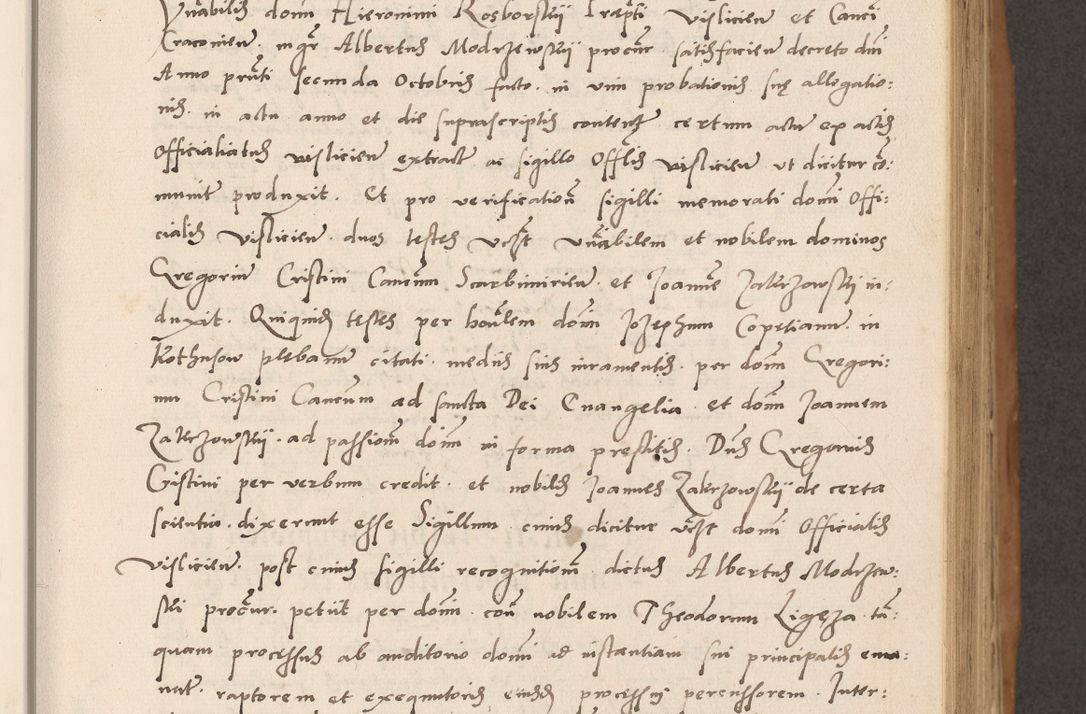 Vnābilis domī Hieronimi Rosborskÿ Praepti Vislicien et Canci
Craconien. mgr Albertus Modrzewskÿ procur. satisfacien decreto dni
Anno prnti secunda Octobris facto. in vim probationis suę allegatio:
nis. in actu anno et die suprascriptis content certum actu ex actis
Officialiatus visliciens extract ac sigillo Offlis vislicien vt dicitur cō:
munit produxit. Et pro verification sigilli memorati domī Offi:
cialis Vislicien. duos testes vczt vnābilem et nobilem dominos
Gregoriū Cristini Canēum Scarbimirien. et Joannē Zakrzowskÿ in:
duxit. Quiquidē testes per hōnlem domī Jozephum Copetianū. in
Kothusow plebanū citati. mediis suis iuramentis. per domī Gregori:
um Cristini Canēum ad sancta Dei Euangelia. et domī Joannem
Zakrzowskÿ. ad passionē domī in forma prestitis. Dns Gregorius
Cristini per verbum credit. et nobilis Joannes Zakrzowskÿ de certa
scientia. dixerunt esse Sigillum. cuius dicitur vczt domī Officialis
Vislicien. post cuius sigilli recognitionē. dictus Albertus Modrzew:
ski procur. petiit per domī. coñ nobilem Theodorum Ligęza. tā:
quam processus ab auditorio domī ad instantiam sui principalis ema:
nati. raptorem et exequutoris eiusdē processus percussorem. Inter: